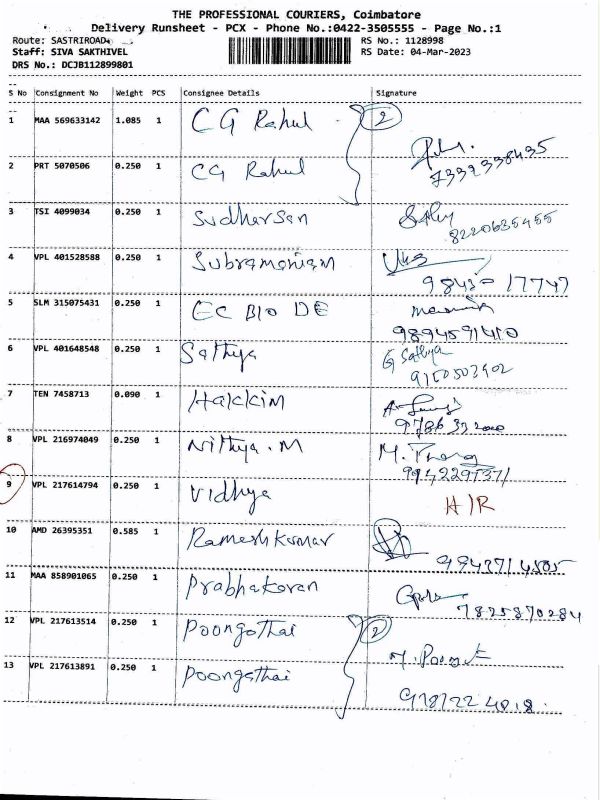 THE PROFESSIONAL COURIERS, Coimbatore
Delivery Runsheet - PCX - Phone No.:0422-3505555 - Page No.:1
Route: SASTRIROAD RS No.: 1128998
Staff: SIVA SAKTHIVEL RS Date: 04-Mar-2023
DRS No.: DCJB112899801
S No Consignment No Weight PCS Consignee Details Signature
1 MAA 569633142 1.085 1 C G Rahul 2
7332338435
2 PRT 5070506 0.250 1 CG Rahul
3 TSI 4099034 0.250 1 Sudharsan
8220635455
4 VPL 401528588 0.250 1 Subramaniam
5 SLM 315075431 0.250 1 EC BIO DE
9894591410
6 VPL 401648548 0.250 1 Sathya G Sathya
9150503902
7 TEN 7458713 0.090 1 Hakkim
8 VPL 216974049 0.250 1 Nithya . M
9 VPL 217614794 0.250 1 Vidhya H/R
10 AMD 26395351 0.585 1 Ramesh Kumar
11 MAA 858901065 0.250 1 Prabhakaran
7825870284
12 VPL 217613514 0.250 1 Poongothai 2
13 VPL 217613891 0.250 1 Poongothai